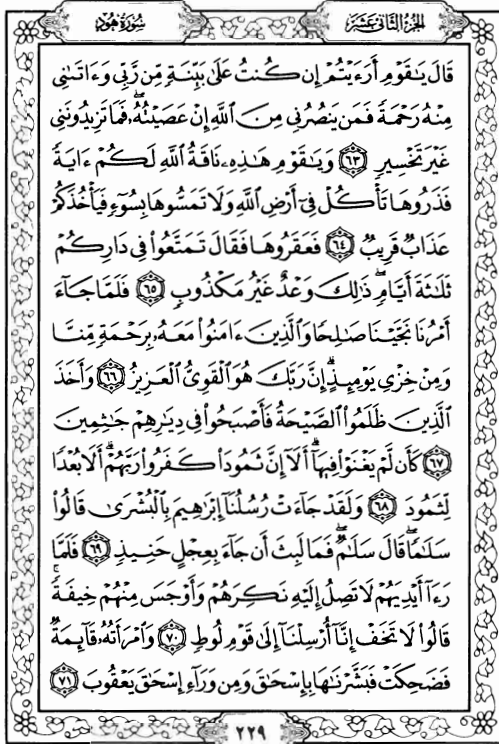 الجزء الثاني عشر
سورة هود
قَالَ يَٰقَوْمِ أَرَءَيْتُمْ إِن كُنتُ عَلَىٰ بَيِّنَةٍ مِّن رَّبِّي وَءَاتَىٰنِي
مِنْهُ رَحْمَةً فَمَن يَنصُرُنِي مِنَ ٱللَّهِ إِنْ عَصَيْتُهُۥۖ فَمَا تَزِيدُونَنِي
غَيْرَ تَخْسِيرٍ ٦٣ وَيَٰقَوْمِ هَٰذِهِۦ نَاقَةُ ٱللَّهِ لَكُمْ ءَايَةً
فَذَرُوهَا تَأْكُلْ فِىٓ أَرْضِ ٱللَّهِ وَلَا تَمَسُّوهَا بِسُوٓءٍ فَيَأْخُذَكُمْ
عَذَابٌ قَرِيبٌ ٦٤ فَعَقَرُوهَا فَقَالَ تَمَتَّعُوا۟ فِى دَارِكُمْ
ثَلَٰثَةَ أَيَّامٍۖ ذَٰلِكَ وَعْدٌ غَيْرُ مَكْذُوبٍ ٦٥ فَلَمَّا جَآءَ
أَمْرُنَا نَجَّيْنَا صَٰلِحًا وَٱلَّذِينَ ءَامَنُوا۟ مَعَهُۥ بِرَحْمَةٍ مِّنَّا
وَمِنْ خِزْىِ يَوْمِئِذٍۗ إِنَّ رَبَّكَ هُوَ ٱلْقَوِىُّ ٱلْعَزِيزُ ٦٦ وَأَخَذَ
ٱلَّذِينَ ظَلَمُوا۟ ٱلصَّيْحَةُ فَأَصْبَحُوا۟ فِى دِيَٰرِهِمْ جَٰثِمِينَ
٦٧ كَأَن لَّمْ يَغْنَوْا۟ فِيهَآۗ أَلَآ إِنَّ ثَمُودَا۟ كَفَرُوا۟ رَبَّهُمْۗ أَلَا بُعْدًا
لِّثَمُودَ ٦٨ وَلَقَدْ جَآءَتْ رُسُلُنَآ إِبْرَٰهِيمَ بِٱلْبُشْرَىٰ قَالُوا۟
سَلَٰمًاۖ قَالَ سَلَٰمٌۖ فَمَا لَبِثَ أَن جَآءَ بِعِجْلٍ حَنِيذٍ ٦٩ فَلَمَّا
رَءَآ أَيْدِيَهُمْ لَا تَصِلُ إِلَيْهِ نَكِرَهُمْ وَأَوْجَسَ مِنْهُمْ خِيفَةًۚ
قَالُوا۟ لَا تَخَفْ إِنَّآ أُرْسِلْنَآ إِلَىٰ قَوْمِ لُوطٍ ٧٠ وَٱمْرَأَتُهُۥ قَآئِمَةٌ
فَضَحِكَتْ فَبَشَّرْنَٰهَا بِإِسْحَٰقَ وَمِن وَرَآءِ إِسْحَٰقَ يَعْقُوبَ ٧١
٢٢٩